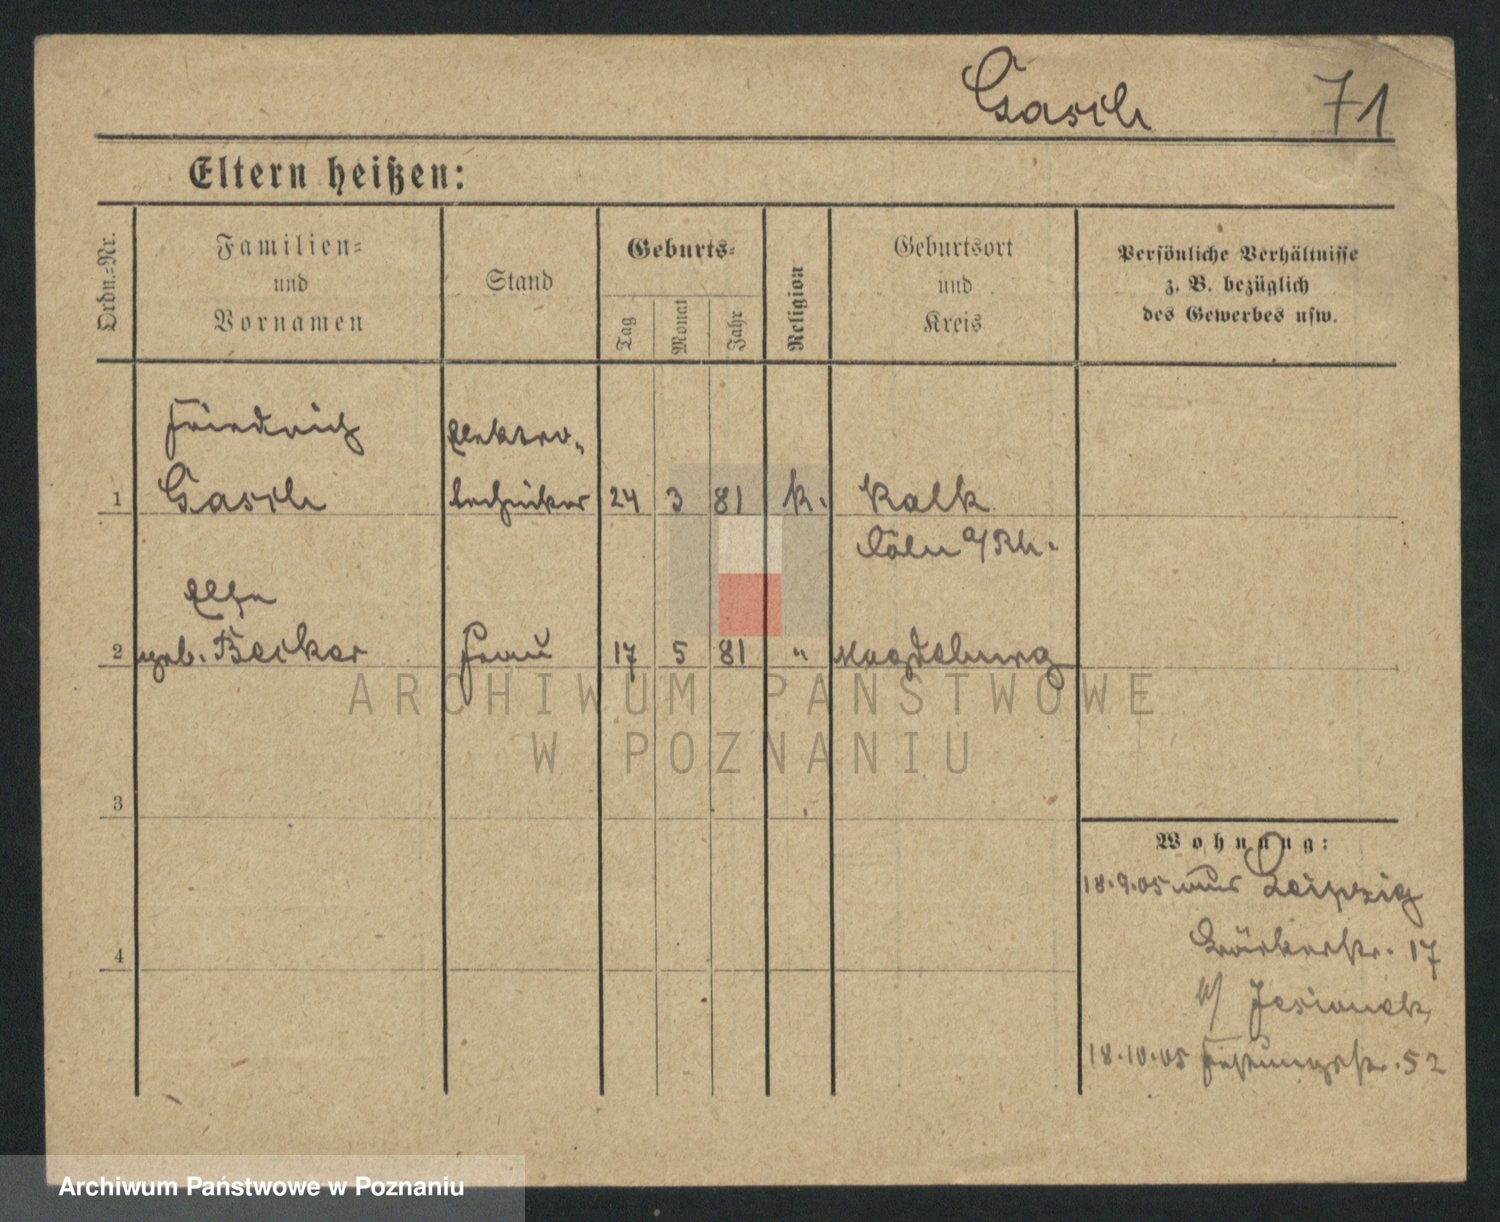 Gasch 71
Eltern heißen:
Ordn.=Nr.
Familien=
und
Vornamen
Stand
Geburts=
Tag
Monat
Jahr
Religion
Geburtsort
und
Kreis
Persönliche Verhältnisse
z. B. bezüglich
des Gewerbes usw.
Friedrich Elektro-
1 Gasch techniker 24 3 81 k. Kalk
Cöln a/Rh.
Else
2 geb. Becker Frau 17 5 81 " Magdeburg
ARCHIWUM PAŃSTWOWE
W POZNANIU
3
Wohnung:
18.9.05 aus Leipzig
4
Bäckerstr. 17
b/ Jesionek
18.10.05 Festungsstr. 52
Archiwum Państwowe w Poznaniu